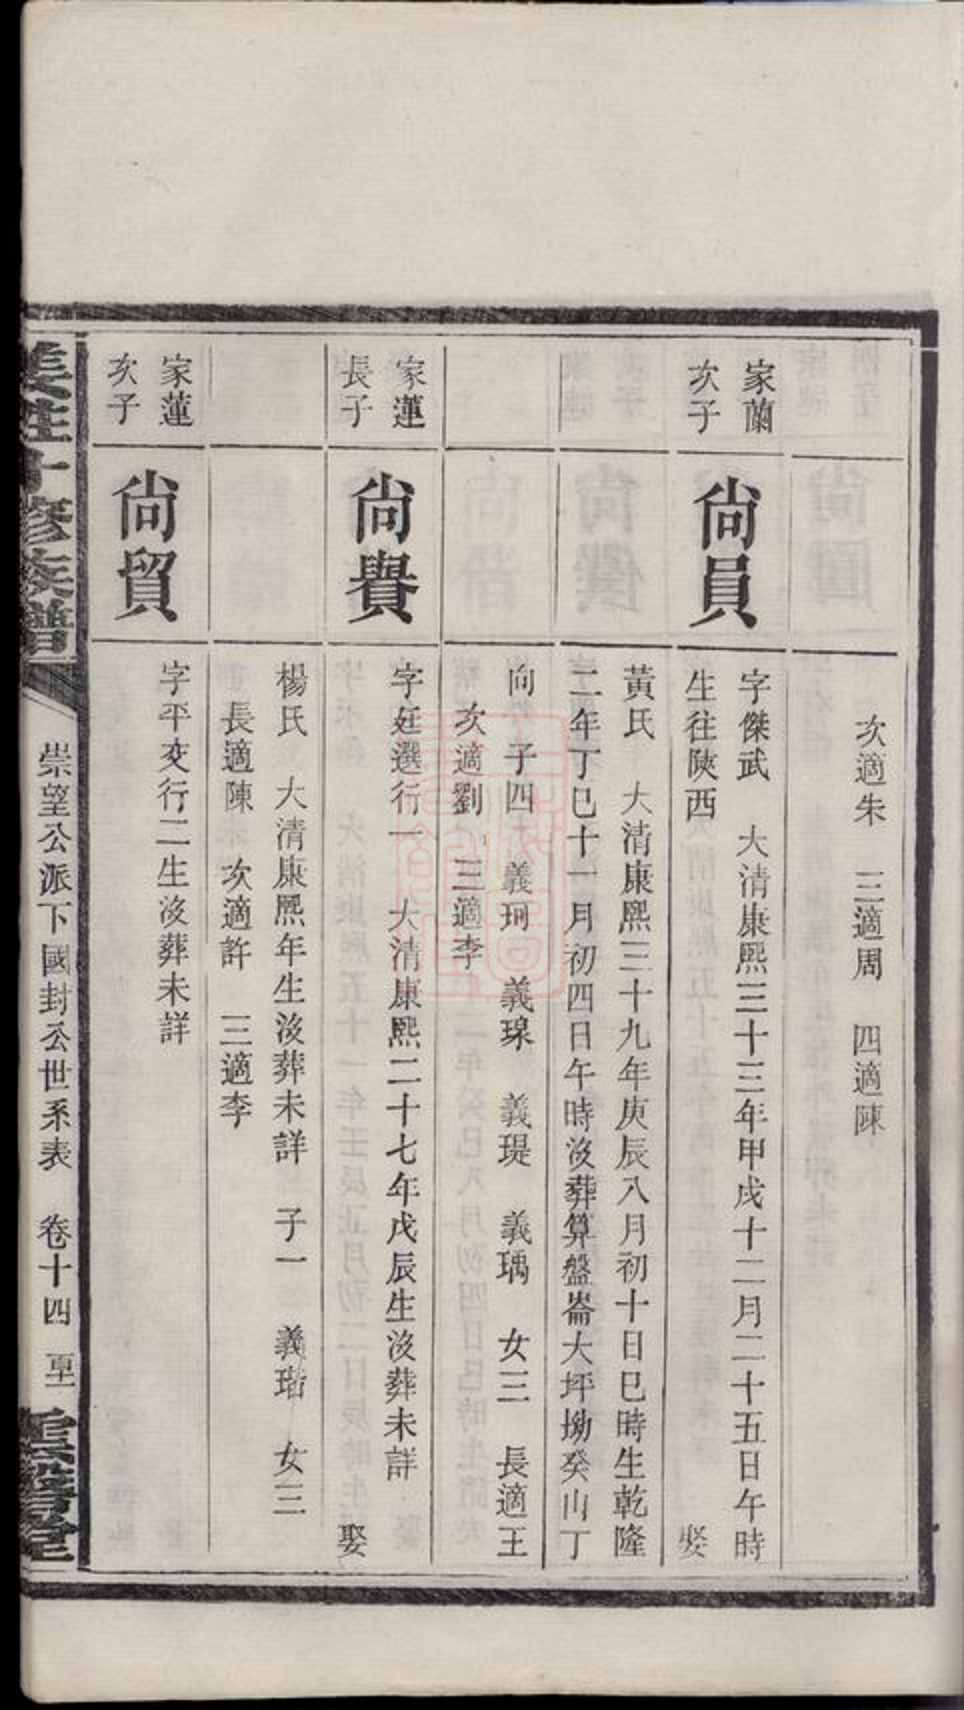 次適朱　三適周　四適陳
家蘭
次子
尙員
字傑武　大清康熙三十三年甲戌十二月二十五日午時
生往陝西　娶
黃氏　大清康熙三十九年庚辰八月初十日巳時生乾隆
二年丁巳十一月初四日午時沒葬算盤崙大坪坳癸山丁
向　子四　義珂　義瑔　義瑅　義瑀　女三　長適王
次適劉　三適李
家蓮
長子
尙譽
字廷選行一　大清康熙二十七年戊辰生沒葬未詳
娶
楊氏　大清康熙年生沒葬未詳　子一　義瑎　女三
長適陳　次適許　三適李
家蓮
次子
尙貿
字平交行二生沒葬未詳
姜姓十修族譜
崇望公派下國封公世系表　卷十四